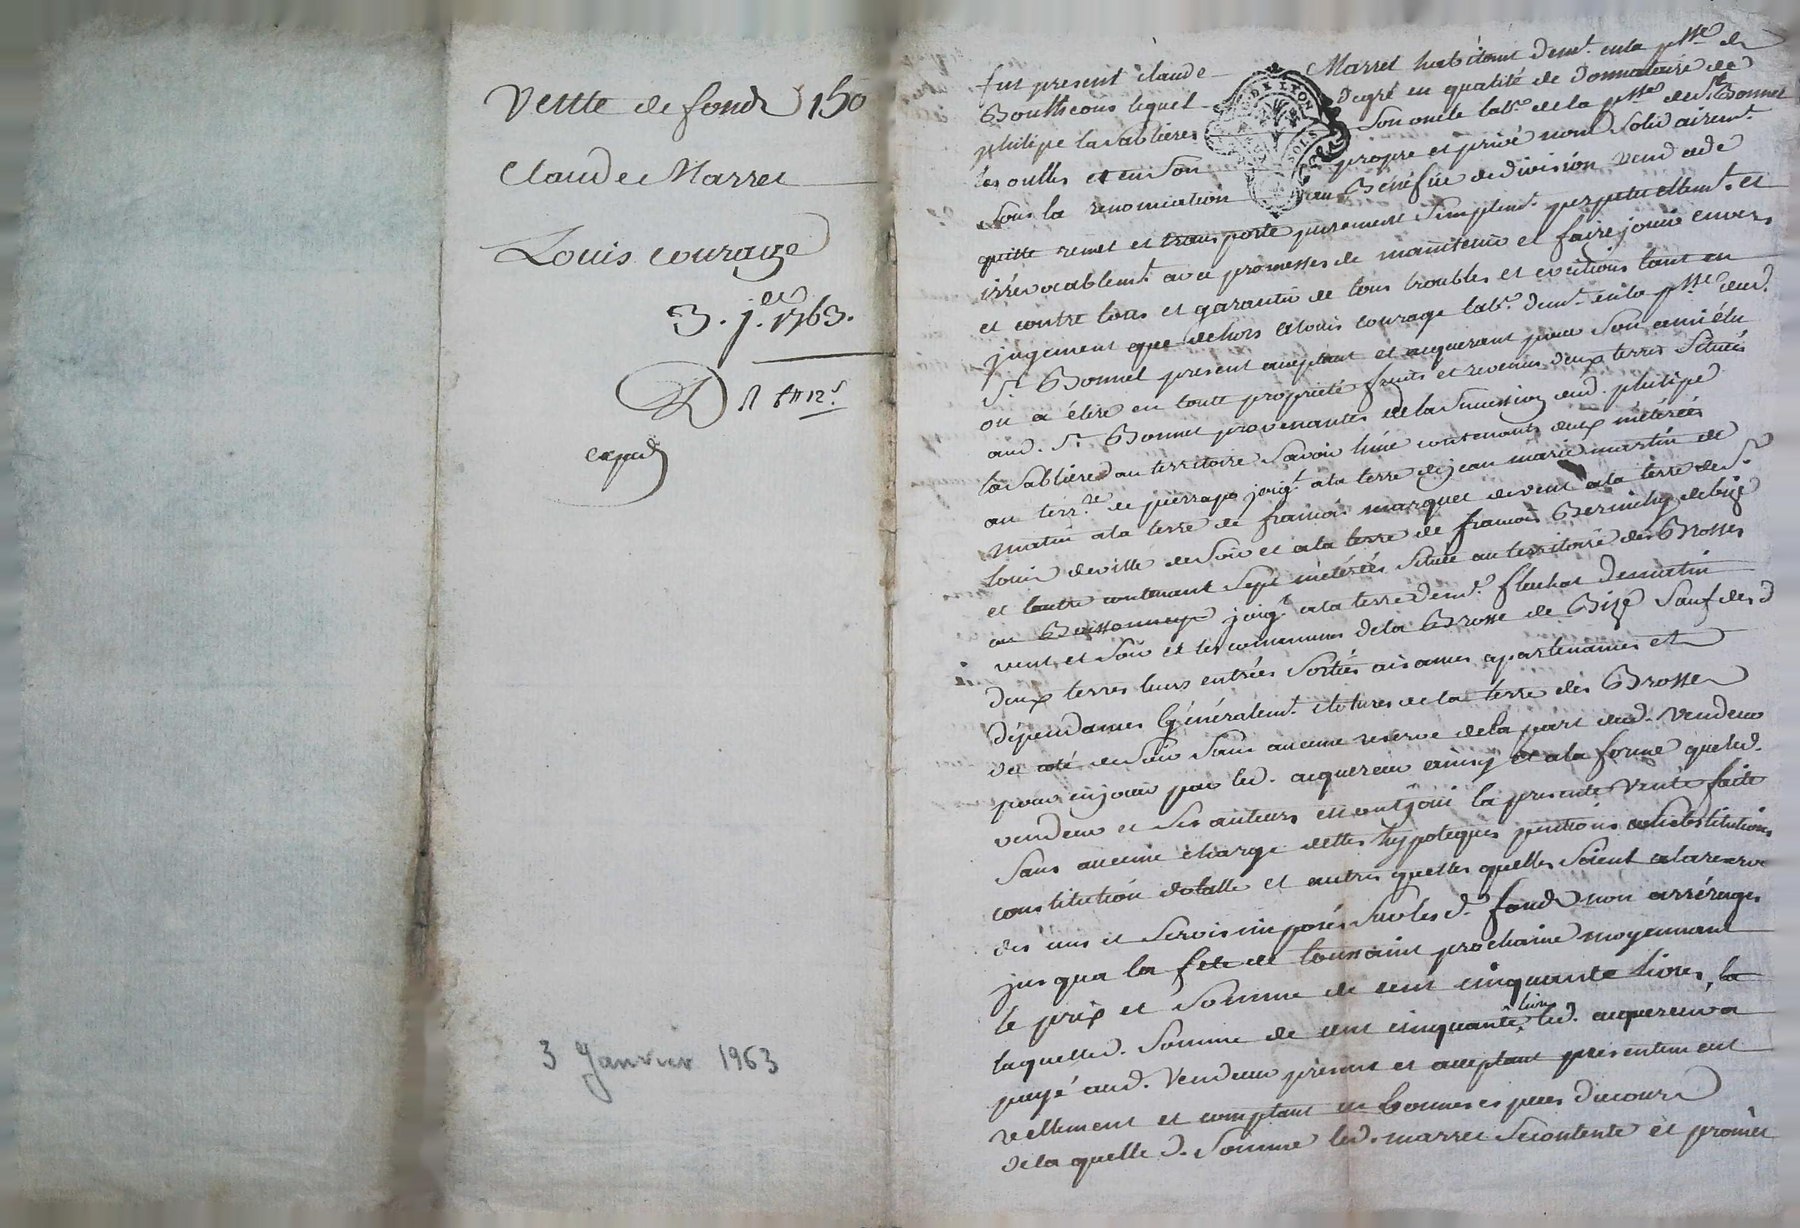 Vente de fonds 150
Claude Marret
Louis courage
3. j.er 1763.
12.s
exped
3 Janvier 1963
fut present claude Marret habitant dem.t en la psse de
Bouttheons lequel degré en qualité de donnataire de
philipe lasablieres son oncle lab.r de la psse de St Bonnet
les oulles et en son propre et privé nom solidairem.t
sous la renonciation au Bénéfice de division vend cede
quitte remet et transporte purement simplem.t perpetuellem.t et
irrévocablem.t avec promesses de maintenir et faire jouir envers
et contre tous et garantir de tous troubles et evictions tant en
jugement que dehors a louis courage lab.r dem.t en la psse dud.
S.t Bonnet present acceptant et acquerant pour son ami élu
ou a élire en toute proprieté fruits et revenus deux terres situées
aud. S.t Bonnet provenantes de la succession dud. philipe
lasablieres au territoire savoir lune contenant deux métérées
au terr.re de pierrape joig.t a la terre de jean marie martin de
matin a la terre de francois marquet de vent a la terre de S.r
louis deville de soir et a la terre de francois Bernichy de bize
et lautre contenant sept métérées située au territoire des Brosses
ou Boissonneye joig.t a la terre dem.r fleuhat de matin
vent et soir et les communes de la Brosse de Bize sauf des d
deux terres leurs entrées sorties aisances apartenances et
dépendances Généralem.t clotures de la terre des Brosses
du coté de soir sans aucune reserve de la part dud. vendeur
pour en jouir par led. acquereur ainsy et a la forme que led.
vendeur et ses auteurs en ont joui la presente vente faite
sans aucune charge dettes hypoteques pentions substitutions
constitution dotalle et autres quelles quelles soient a la reserve
des cens et servis imposés sur les d. fonds non arrérages
jusqua la fete de toussaint prochaine moyennant
le prix et somme de cent cinquante livres, la
laquelle d. somme de cent cinquante livres led. acquereur a
payé aud. vendeur présent et acceptant presentement
reellement et comptant en bonnes especes du cours
de la quelle d. somme led. marret se contente et promet
DE LYON
SOLS